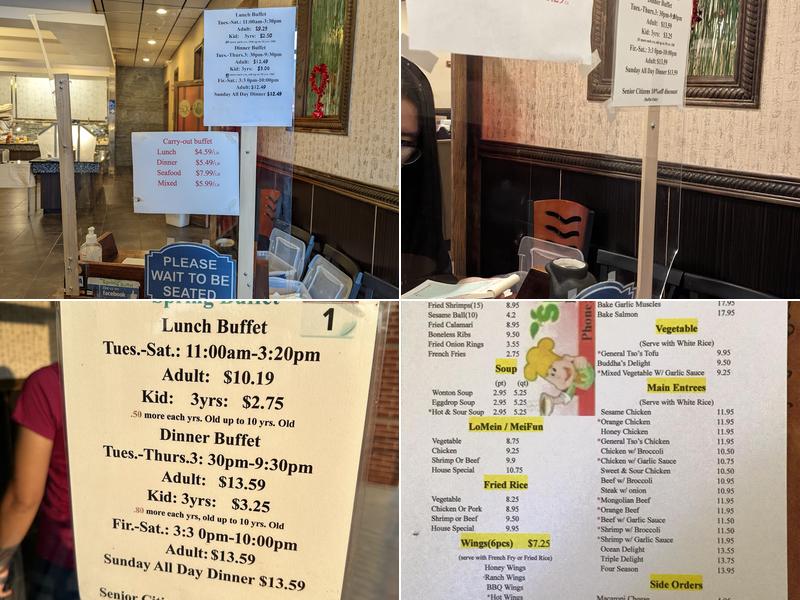 Lunch Buffet
Tues.-Sat.: 11:00am-3:30pm
Adult: $9.25
Kid: 3yrs: $2.50
Dinner Buffet
Tues.-Thurs.3: 30pm-9:30pm
Adult: $12.49
Kid: 3yrs: $3.00
Fir.-Sat.: 3:3 0pm-10:00pm
Adult:$12.49
Sunday All Day Dinner $12.49
Carry-out buffet
Lunch $4.59/
Dinner $5.49/
Seafood $7.99/
Mixed $5.99/
PLEASE
WAIT TO BE
SEATED
facebook
Dinner Buffet
Tues.-Thurs.3: 30pm-9:30pm
Adult: $13.59
Kid: 3yrs: $3.25
Fir.-Sat.: 3:3 0pm-10:00pm
Adult:$13.59
Sunday All Day Dinner $13.59
Senior Citizens 10%off discount
Spring Buffet
1
Lunch Buffet
Tues.-Sat.: 11:00am-3:20pm
Adult: $10.19
Kid: 3yrs: $2.75
.50 more each yrs. Old up to 10 yrs. Old
Dinner Buffet
Tues.-Thurs.3: 30pm-9:30pm
Adult: $13.59
Kid: 3yrs: $3.25
.80 more each yrs, old up to 10 yrs. Old
Fir.-Sat.: 3:3 0pm-10:00pm
Adult:$13.59
Sunday All Day Dinner $13.59
Senior
Fried Shrimps(15) 8.95
Sesame Ball(10) 4.2
Fried Calamari 8.95
Boneless Ribs 9.50
Fried Onion Rings 3.55
French Fries 2.75
Soup
(pt) (qt)
Wonton Soup 2.95 5.25
Eggdrop Soup 2.95 5.25
*Hot & Sour Soup 2.95 5.25
LoMein / MeiFun
Vegetable 8.75
Chicken 9.25
Shrimp Or Beef 9.9
House Special 10.75
Fried Rice
Vegetable 8.25
Chicken Or Pork 8.95
Shrimp or Beef 9.50
House Special 9.95
Wings(6pcs) $7.25
(serve with French Fry or Fried Rice)
Honey Wings
Ranch Wings
BBQ Wings
*Hot Wings
Phone
Bake Garlic Muscles 17.95
Bake Salmon 17.95
Vegetable
(Serve with White Rice)
*General Tso's Tofu 9.95
Buddha's Delight 9.50
*Mixed Vegetable W/ Garlic Sauce 9.25
Main Entrees
(Serve with White Rice)
Sesame Chicken 11.95
*Orange Chicken 11.95
Honey Chicken 11.95
*General Tso's Chicken 11.95
Chicken w/ Broccoli 10.50
*Chicken w/ Garlic Sauce 10.75
Sweet & Sour Chicken 10.50
Beef w/ Broccoli 10.95
Steak w/ onion 10.95
*Mongolian Beef 11.95
*Orange Beef 11.95
*Beef w/ Garlic Sauce 11.50
*Shrimp w/ Broccoli 11.50
*Shrimp w/ Garlic Sauce 11.95
Ocean Delight 13.55
Triple Delight 13.75
Four Season 13.95
Side Orders